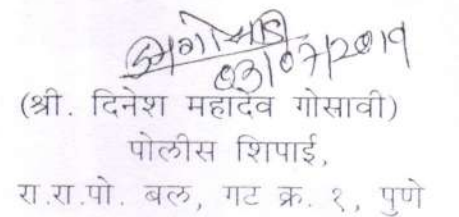 03/07/2019
(श्री. दिनेश महादेव गोसावी)
पोलीस शिपाई,
रा.रा.पो. बल, गट क्र. १, पुणे